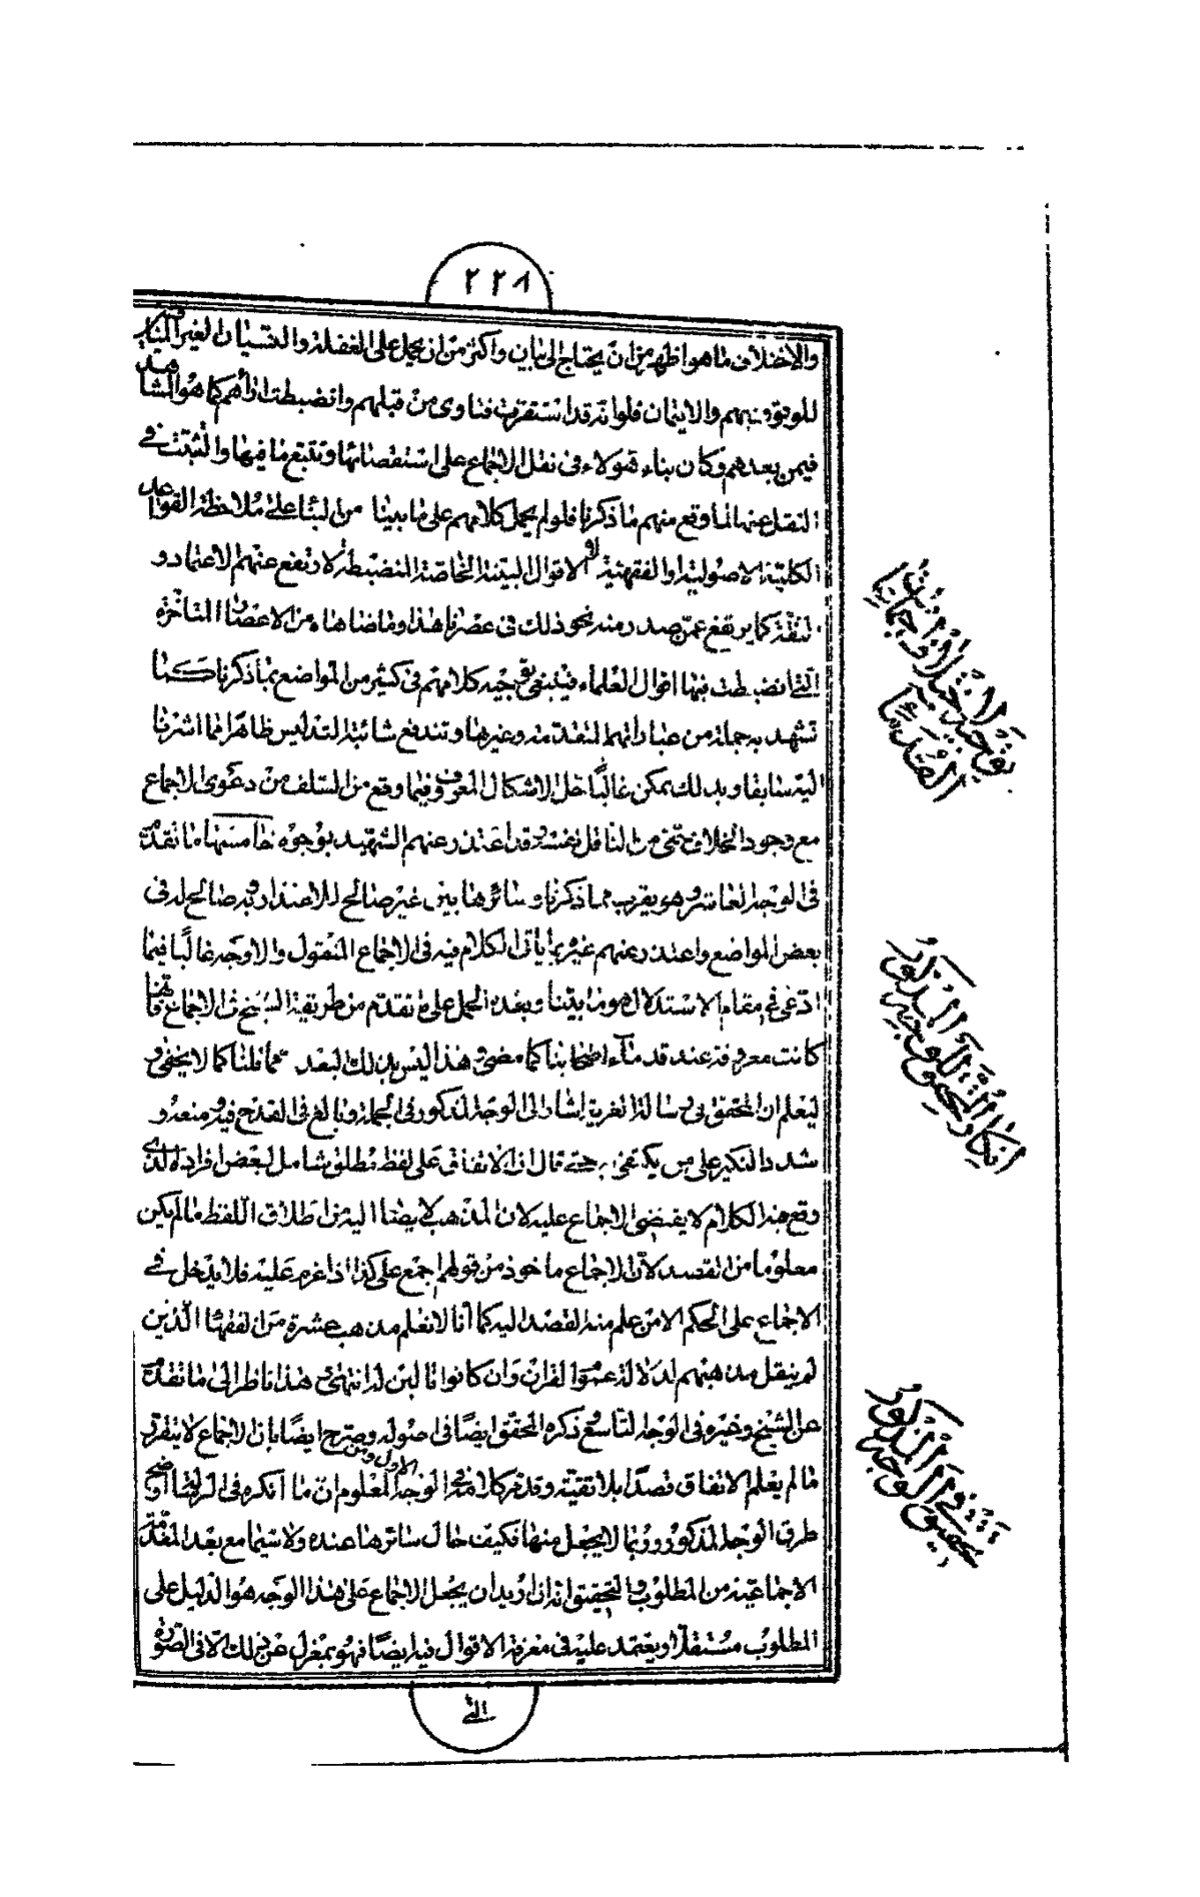 ٢٢٨
والاختلاف ما هو اظهر من ان يحتاج الى بيان واكثر من ان يحمل على الغفلة والنسيان لغير المنافى
للوثوق بهم والايتمان فلو انه قد استقرت فتاوى من قبلهم وانضبطت اراؤهم كما هو المشاهد
فيمن بعدهم وكان بناء هؤلاء فى نقل الاجماع على استقصائها وتتبع ما فيها والتثبت فى
النقل عنها لما وقع منهم ما ذكرنا فلو لم يحمل كلامهم على ما بينا من البناء على ملاحظة القواعد
الكلية الاصولية والفقهية او الاقوال البينة الخاصة المنضبطة لارتفع عنهم الاعتماد و
الثقة كما يرتفع عمن صدر منه نحو ذلك فى عصرنا هذا وما ضاهاه من الاعصار المتاخرة
التى انضبطت فيها اقوال العلماء فينبغى توجيه كلامهم فى كثير من المواضع بما ذكرنا كما
تشهد به جملة من عباراتهم المتقدمة وغيرها وتندفع شائبة التدليس ظاهرا بما اشرنا
اليه سابقا وبذلك يمكن غالبا حل الاشكال المعروف فيما وقع من السلف من دعوى الاجماع
مع وجود الخلاف حتى من الناقل نفسه وقد اعتذر عنهم الشهيد بوجوه خامسها ما تقدم
فى الوجه العاشر وهو يقرب مما ذكرنا وسائرها بين غير صالح للاعتذار وبه صالح له فى
بعض المواضع واعتذر عنهم غيره بما ياتى الكلام فيه فى الاجماع المنقول والاوجه غالبا فيما
ادعى فى مقام الاستدلال هو ما بينا وبعده الحمل على ما تقدم من طريقة الشيخ فى الاجماع فانها
كانت معروفة عند قدماء اصحابنا كما مضى وهذا ليس بذلك البعد عما قلنا كما لا يخفى و
ليعلم ان المحقق فى رسالة الغرية اشار الى الوجه المذكور فى الجملة وبالغ فى القدح فيه ومنعه و
شدد النكير على من يكتفى به حتى قال ان الاتفاق على لفظ مطلق شامل لبعض افراده الذى
وقع فيه الكلام لا يقتضى الاجماع عليه لان المذهب لا يصار اليه من اطلاق اللفظ ما لم يكن
معلوما من القصد لان الاجماع ماخوذ من قولهم اجمع على كذا اذا عزم عليه فلا يدخل فى
الاجماع على الحكم الا من علم منه القصد اليه كما انا لا نعلم مذهب عشرة من الفقهاء الذين
لم ينقل مذهبهم لدلالة عموم القران وان كانوا قائلين به انتهى وهذا ناظر الى ما تقدم
عن الشيخ وغيره فى الوجه التاسع ذكره المحقق ايضا فى اصوله وصرح ايضا بان الاجماع لا يتقرر
ما لم يعلم الاتفاق قصدا بلا تقية وقد مر كلامه فى الوجه الاول ومن المعلوم ان ما انكره فى الرسالة اوضح
طرق الوجه المذكور وربما لا يجعل منها فكيف حال سائرها عنده ولا سيما مع بعد المقدمة
الاجماعية من المطلوب والتحقيق انه ان اريد ان يجعل الاجماع على هذا الوجه هو الدليل على
المطلوب مستقلا او يعتمد عليه فى معرفة الاقوال فيه ايضا فهو بمعزل عن ذلك الا فى الصورة
التى
توجيه اختلاف اجماعات
القدماء
انكار المحقق للوجه المذكور
تحقيق فى الوجه المذكور